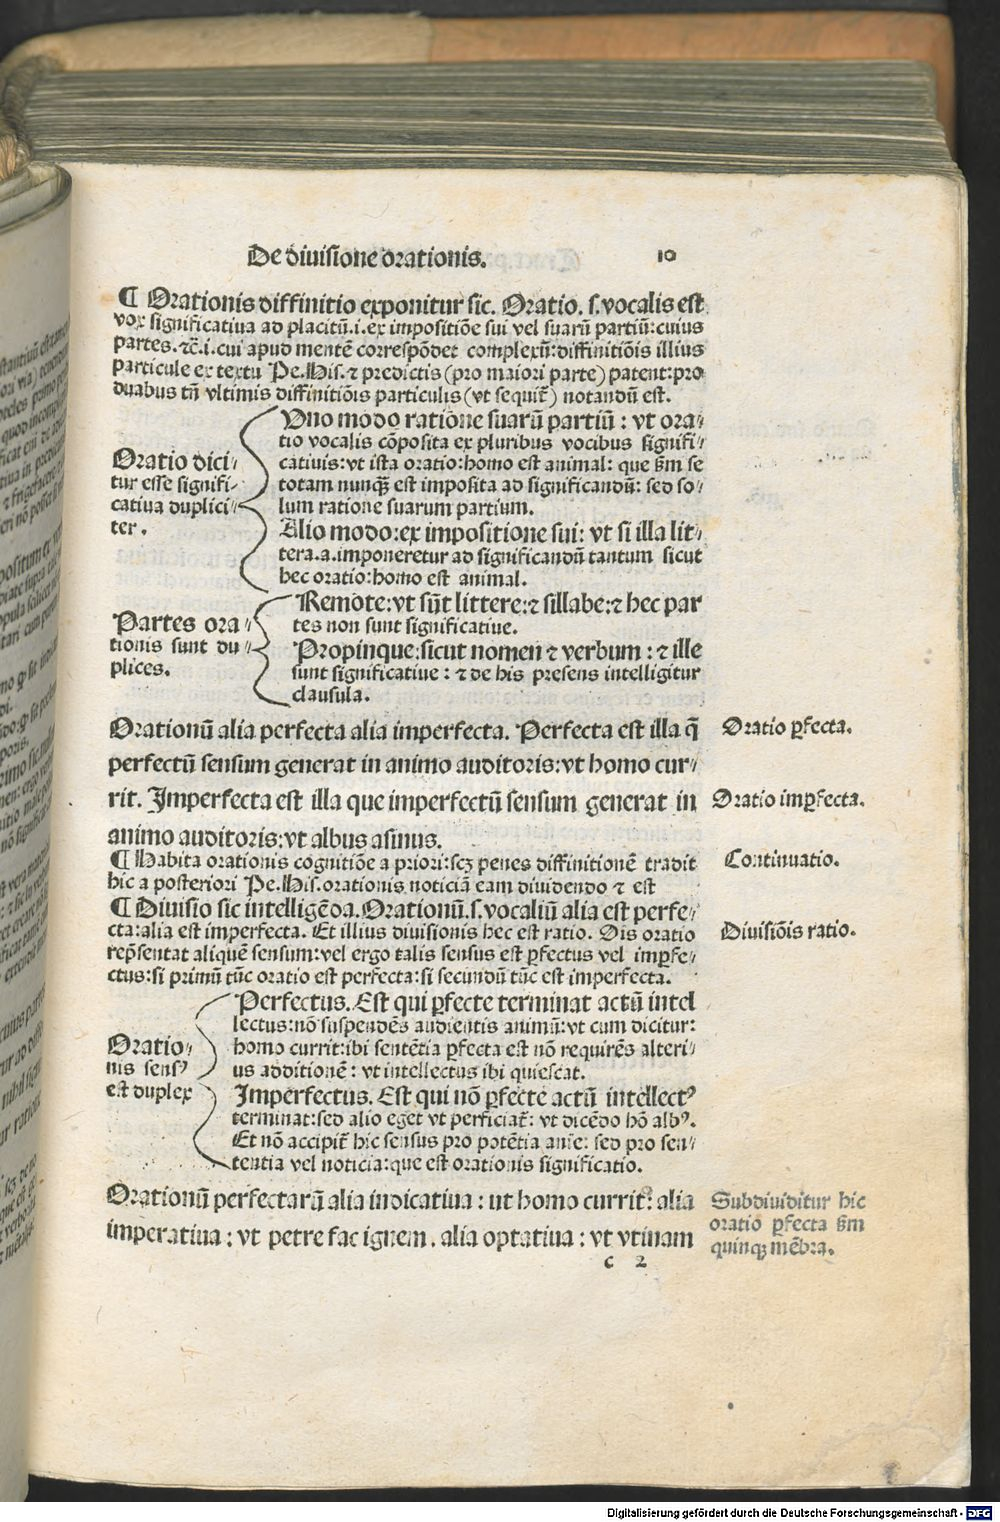 De diuisione orationis. 10
¶ Orationis diffinitio exponitur sic. Oratio. s. vocalis est
vox significatiua ad placitū .i. ex impositiōe sui vel suarū partiū: cuius
partes. ⁊c̄. i. cui apud mentē correspōdet complexū: diffinitiōis illius
particule ex textu Pe. His. ⁊ predictis (pro maiori parte) patent: pro
duabus tn̄ vltimis diffinitiōis particulis (vt sequit᷑) notandū est.
Oratio dici⸗
tur esse signifi⸗
catiua duplici⸗
ter.
Uno modo ratione suarū partiū : vt ora⸗
tio vocalis cōposita ex pluribus vocibus signifi⸗
catiuis: vt ista oratio: homo est animal: que s̄m se
totam nunq̄ est imposita ad significandū: sed so⸗
lum ratione suarum partium.
Alio modo: ex impositione sui: vt si illa lit⸗
tera .a. imponeretur ad significandū tantum sicut
hec oratio: homo est animal.
Partes ora⸗
tionis sunt du⸗
plices.
Remote: vt sūt littere: ⁊ sillabe: ⁊ hec par
tes non sunt significatiue.
Propinque: sicut nomen ⁊ verbum : ⁊ ille
sunt significatiue : ⁊ de his presens intelligitur
clausula.
Orationū alia perfecta alia imperfecta. Perfecta est illa q̄
perfectū sensum generat in animo auditoris: vt homo cur⸗
rit. Imperfecta est illa que imperfectū sensum generat in
animo auditoris: vt albus asinus.
Oratio ꝑfecta.
Oratio imꝑfecta.
¶ Habita orationis cognitiōe a priori: scꝫ penes diffinitionē tradit
hic a posteriori Pe. His. orationis noticiā eam diuidendo ⁊ est
Continuatio.
¶ Diuisio sic intelligēda. Orationū. s. vocaliū alia est perfe⸗
cta: alia est imperfecta. Et illius diuisionis hec est ratio. Ois oratio
rep̄sentat aliquē sensum: vel ergo talis sensus est ꝑfectus vel imꝑfe⸗
ctus: si primū tūc oratio est perfecta: si secundū tūc est imperfecta.
Diuisiōis ratio.
Oratio⸗
nis sensꝰ
est duplex
Perfectus. Est qui ꝑfecte terminat actū intel
lectus: nō suspendēs audientis animū: vt cum dicitur:
homo currit: ibi sentētia ꝑfecta est nō requirēs alteri⸗
us additionē : vt intellectus ibi quiescat.
Imperfectus. Est qui nō ꝑfecte actū intellectꝰ
terminat: sed alio eget vt perficiat᷑: vt dicēdo hō albꝰ.
Et nō accipit᷑ hic sensus pro potētia aīe: sed pro sen⸗
tentia vel noticia: que est orationis significatio.
Orationū perfectarū alia indicatiua : ut homo currit: alia
imperatiua : vt petre fac ignem. alia optatiua : vt vtinam
Subdiuiditur hic
oratio ꝑfecta s̄m
quinqꝫ mēbra.
c 2
Digitalisierung gefördert durch die Deutsche Forschungsgemeinschaft - DFG